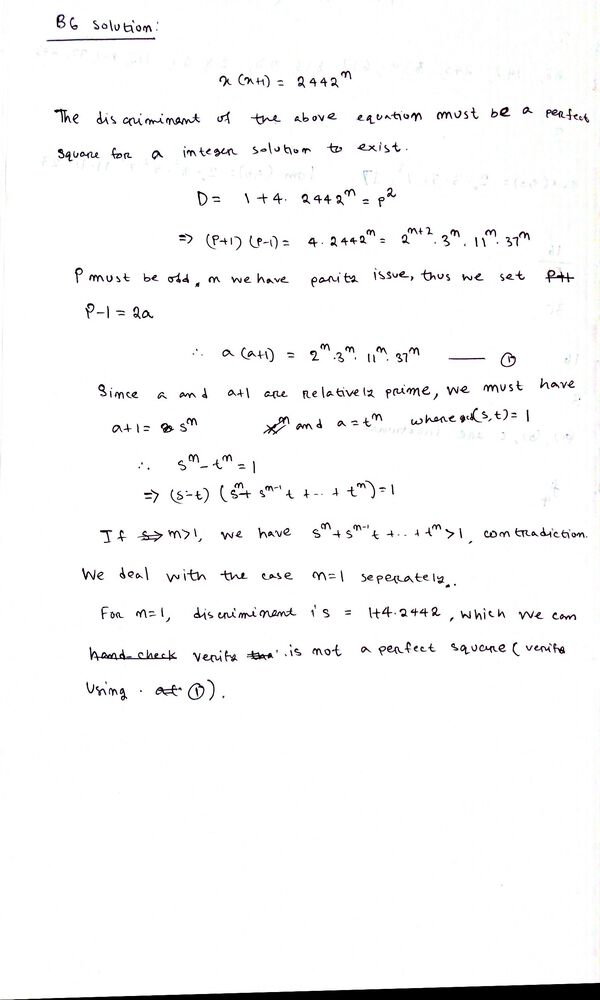 B6 Solution:
x(x+1) = 2442^m
The discriminant of the above equation must be a perfect
square for a integer solution to exist.
D = 1+4. 2442^m = p^2
=> (p+1) (p-1) = 4.2442^m = 2^{m+2}. 3^m. 11^m. 37^m
P must be odd, we have parity issue, thus we set
P-1 = 2a
∴ a(a+1) = 2^m. 3^m. 11^m. 37^m —— ①
Since a and a+1 are relatively prime, we must have
a+1 = s^m and a = t^m where gcd(s,t) = 1
∴ s^m - t^m = 1
=> (s-t) (s^m + s^{m-1} t + ... + t^m) = 1
If m>1, we have s^m + s^{m-1} t + ... + t^m > 1, contradiction.
We deal with the case m=1 seperately.
For m=1, discriminent is = 1+4.2442, which we can
verify is not a perfect square (verify
using ①).